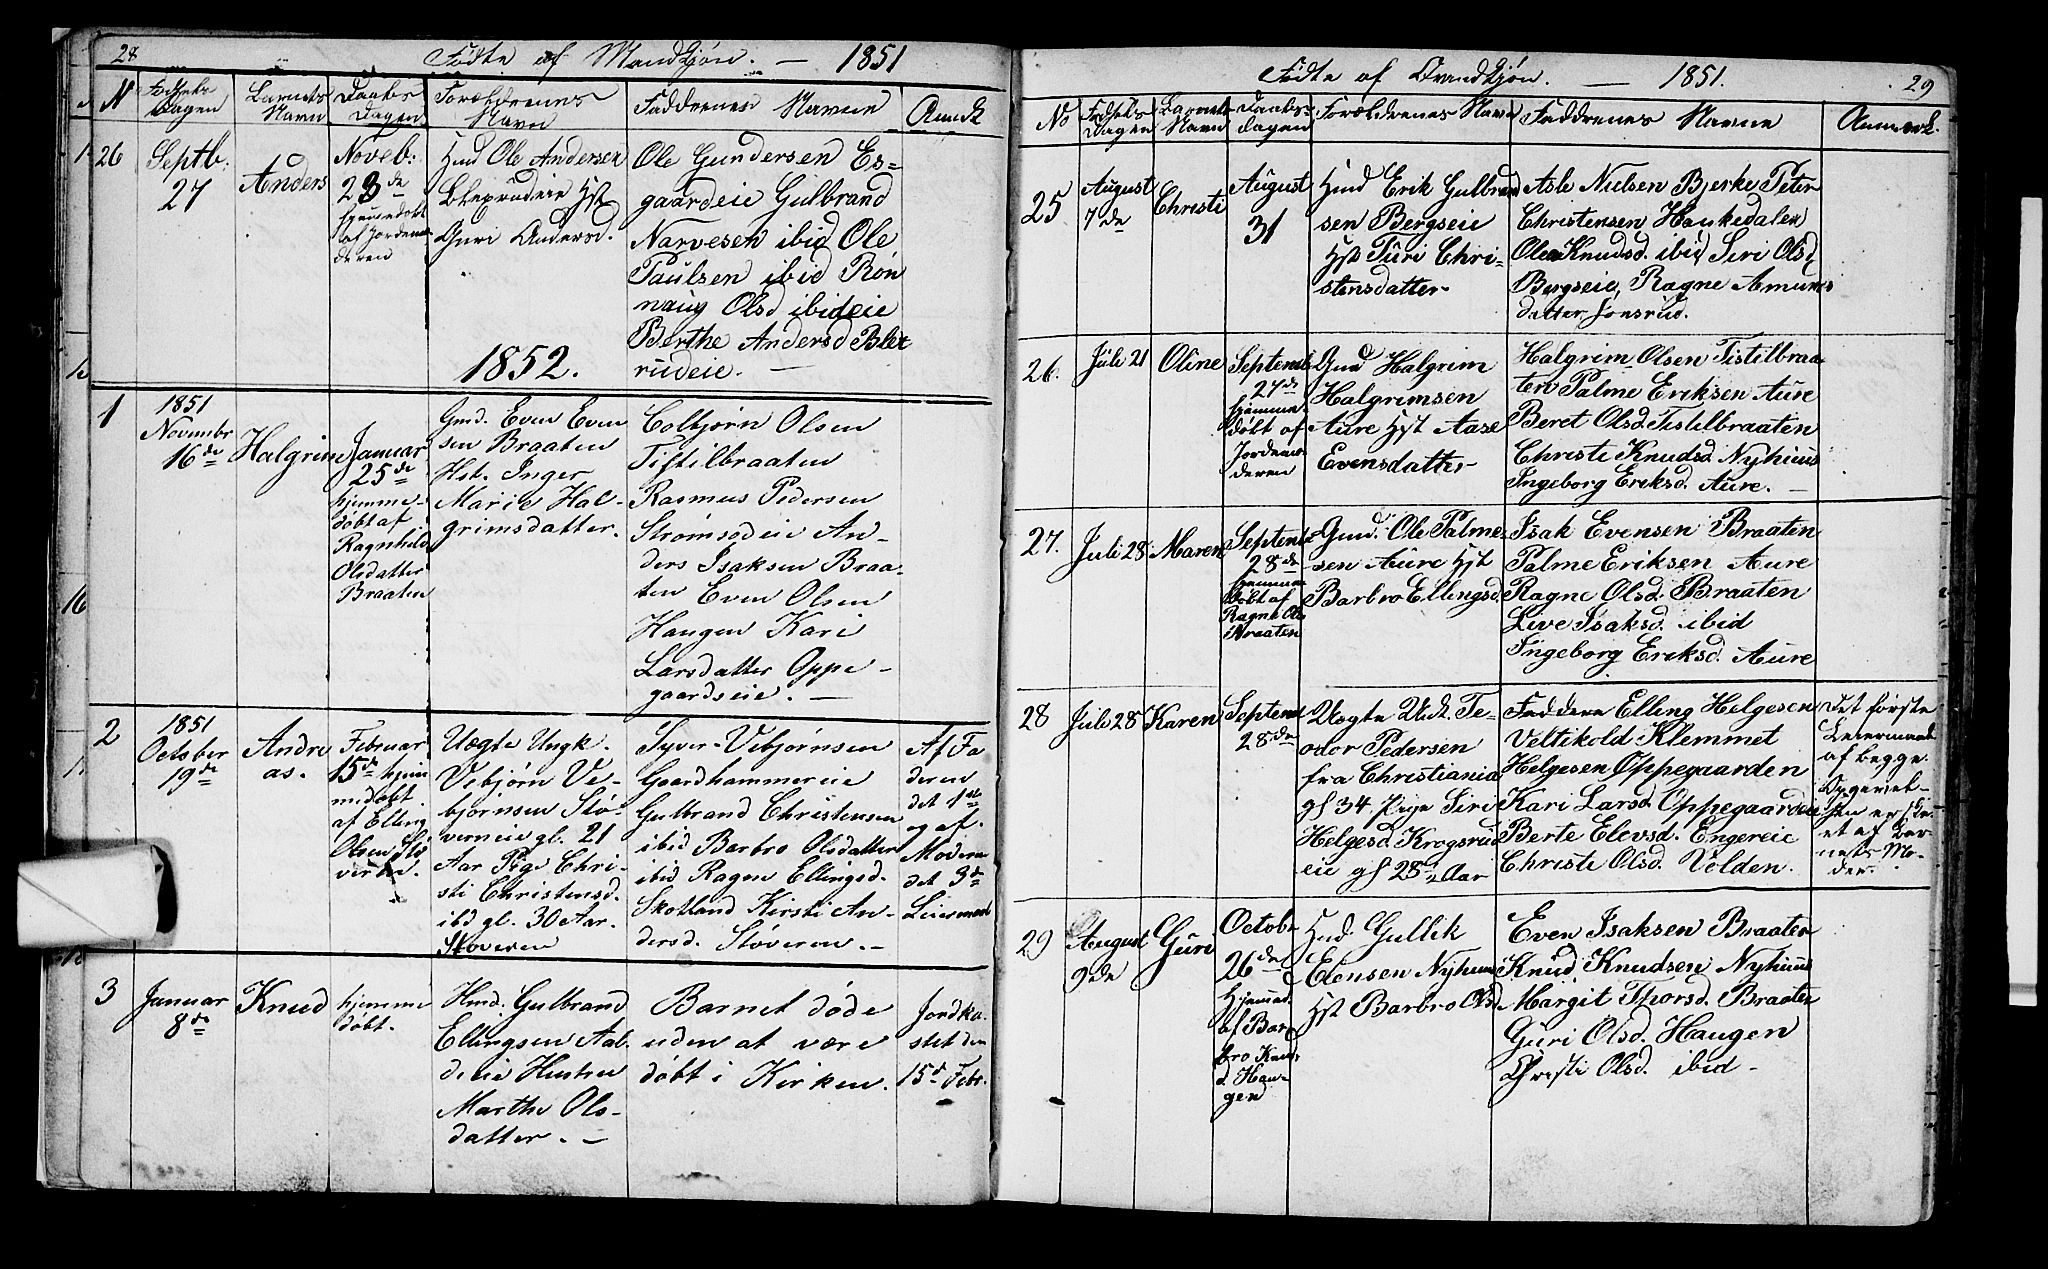 28
Fødte af Mandkjøn. — 1851
N
Fødsels
Dagen
Barnets
Navn
Daabs
Dagen
Forældrenes
Navn
Faddernes Navne
Anmk
26
Septb:
27
Anders
Noveb:
23de
hjemedøbt
af Jordemo
deren
Hmd Ole Andersen
Blexrudeie Hst
Guri Andersd.
Ole Gundersen Es=
gaardeie Gulbrand
Narvesen ibid Ole
Paulsen ibid Røn
naug Olsd ibideie
Berthe Andersd Blex
rudeie. —
1852.
1
1851
Novembr
16de
Halgrim
Januar
25de
hjemme-
døbt af
Ragnhild
Olsdatter
Braaten
Gmd. Even Even
sen Braaten
Hst. Inger
Marie Hal-
grimsdatter.
Colbjørn Olsen
Tistilbraaten
Rasmus Pedersen
Strømsodeie An-
ders Isaksen Braa-
ten Even Olsen
Haugen Kari
Larsdatter Oppe-
gaardseie. —
2
1851
October
19de
Andre
as.
Februar
15de hjem
medøbt
af Elling
Olsen Stø
veren.
Uægte Ungk.
Vebjørn Ve-
bjørnsen Stø-
verneie gl. 21
Aar Pige Chri-
sti Christensd.
ibd gl. 30 Aar.
Støveren
Syver Vebjørnsen
Gaardhammereie
Gulbrand Christensen
ibid Barbro Olsdatter
ibid Ragne Ellingsd.
Skotland Kirsti An-
dersd. Støveren. —
Af Fa
deren
det 1ste
og af
Moderen
det 3de
Leiermaal
3
Januar
8de
Knud
hjemme
døbt.
Hmd. Gulbrand
Ellingsen Aal-
deeie Hustru
Marthe Ols-
datter. —
Barnet døde
uden at være
døbt i Kirken.
Jordka-
stet den
15de Febr.
Fødte af Qvindkjøn. — 1851.
29
No
Fødsels
Dagen
Barnets
Navn
Daabs-
dagen
Forældrenes Navn
Faddrenes Navne
Anmerk.
25
August
7de
Christi
August
31
Hmd Erik Gulbrand
sen Bergseie
Hst Turi Chri=
stensdatter
Asle Nielsen Bjerke Peter
Christensen Haukedalen
Olea Knudsd. ibid Siri Olsd
Bergseie, Ragne Amunds
datter Jonsrud.
26.
Juli 21
Oline
Septemb
27de
hjemme
døbt af
Jordemo-
deren
Gmd Halgrim
Halgrimsen
Aure Hst Aase
Evensdatter
Halgrim Olsen Tistilbraa
ten Palme Eriksen Aure
Beret Olsd. Tistilbraaten
Christi Knudsd. Nyhuus
Ingeborg Eriksd. Aure. —
27.
Juli 28
Maren
Septemb
28de
hjemme
døbt af
Ragne Ols
Braaten
Gmd. Ole Palme-
sen Aure Hst
Barbro Ellingsd.
Isak Evensen Braaten
Palme Eriksen Aure
Ragne Olsd. Braaten
Live Isaksd. ibid
Ingeborg Eriksd. Aure
28
Juli 28
Karen
Septemb
28de
Uægte Udt. Te-
odor Pedersen
fra Christiania
gl 34 Pige Siri
Helgesd. Krogsrud
eie gl 28 Aar
Faddere Elling Helgesen
Veltikold Klemmet
Helgesen Oppegaarden
Kari Larsd. Oppegaardeie
Berte Elevsd. Engereie
Christi Olsd. Volden.
Det første
Leiermaal
af begge.
Opgivel-
sen er ske-
et af Bar-
nets Mo-
der.
29
August
9de
Guri
Octobr
26de
Hjemmd.
af Bar
bro Knud
d. Hau-
gen
Hmd. Gullik
Evensen Nyhuus
Hst Barbro Olsd.
Even Isaksen Braaten
Knud Knudsen Nyhuus
Margit Thorsd. Braaten
Guri Olsd. Haugen
Christi Olsd. ibid —